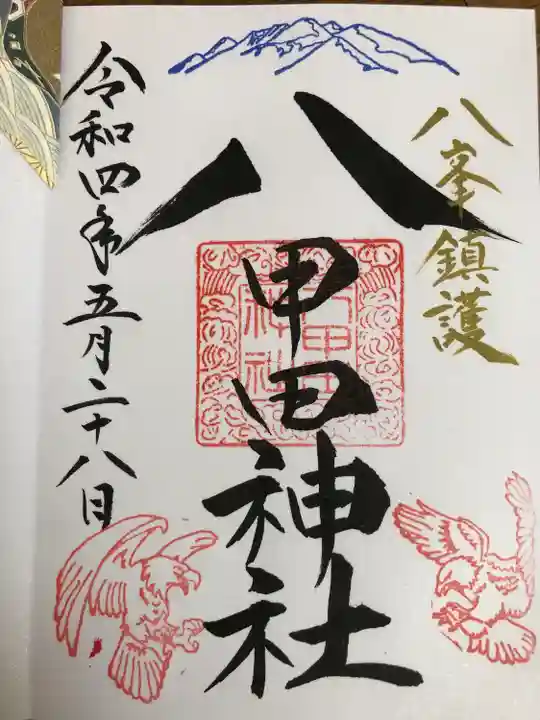 八峯鎮護
八甲田神社
八甲田
神社
令和四年五月二十八日